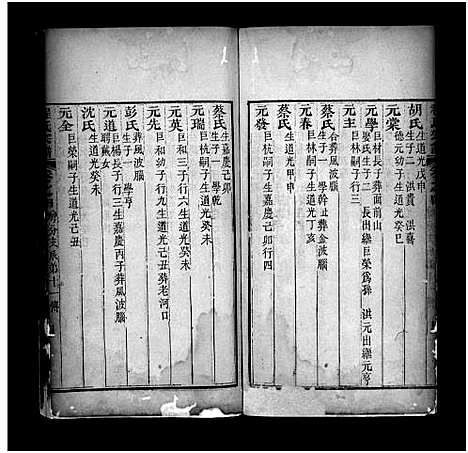 胡氏 生道光戊申
生子二 洪貴 洪喜
元棠 德元幼子生道光癸巳
元學 巨材長子葬面前山
娶氏生子二 長出繼巨榮爲孫 洪元出繼元亨
元主 巨林嗣子行三
蔡氏 合葬風波腦
生子一 學幹 並葬金波腦
元春 巨林嗣子生道光丁亥
蔡氏 生道光甲申
元發 巨杭嗣子生嘉慶己卯行四
蔡氏 生嘉慶己卯
生子一 學乾
元瑞 巨杭嗣子生道光癸未
元英 巨和三子行六生道光癸未
元先 巨和幼子行九生道光己丑葬老河口
彭氏 葬風波腦
生子一 學亨
元道 巨楊長子行三生嘉慶丙子葬風波腦
聘戴女
沈氏 生道光癸未
元全 巨榮嗣子生道光己丑